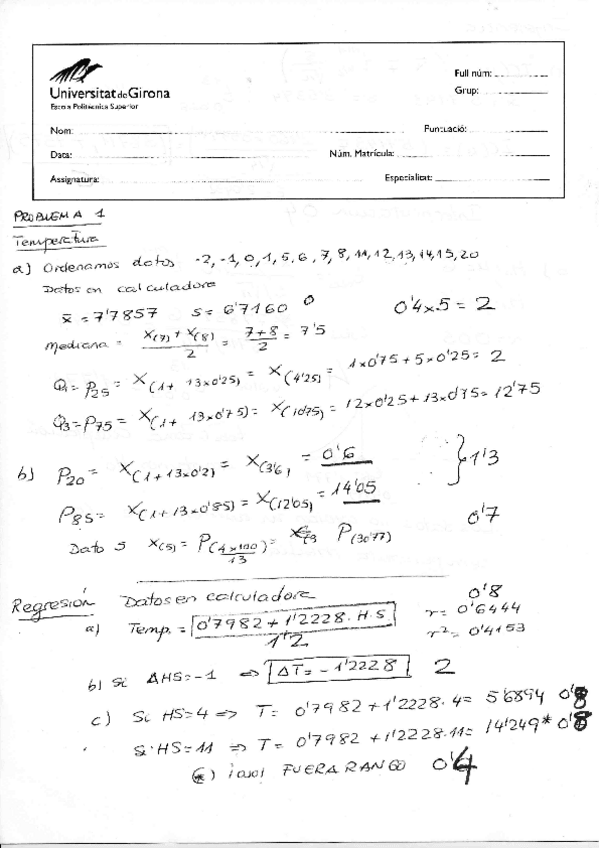 Universitat de Girona
Escola Politècnica Superior
Full núm:
Grup:
Nom:
Puntuació:
Data:
Núm. Matrícula:
Assignatura:
Especialitat:
PROBLEMA 1
Temperatura
a) Ordenamos datos -2, -1, 0, 1, 5, 6, 7, 8, 11, 12, 13, 14, 15, 20
Datos en calculadora
x̄ = 7'7857 s = 6'7160 0'4x5 = 2
Mediana = (X(7) + X(8))/2 = (7+8)/2 = 7'5
Q1 = P25 = X(1+ 13x0'25) = X(4'25) = 1x0'75 + 5x0'25 = 2
Q3 = P75 = X(1+ 13x0'75) = X(10'75) = 12x0'25 + 13x0'75 = 12'75
b) P20 = X(1+13x0'2) = X(3'6) = 0'6 } 1'3
P85 = X(1+13x0'85) = X(12'05) = 14'05
Dato 5 X(5) = P(4x100/13) = P(30'77) 0'7
Regresión Datos en calculadora 0'8
a) Temp. = 0'7982 + 1'2228 . H.S r = 0'6444
1'2 r² = 0'4153
b) Si ΔHS = -1 ⇒ ΔT = -1'2228 2
c) Si HS = 4 ⇒ T = 0'7982 + 1'2228.4 = 5'6894 0'8
Si HS = 11 ⇒ T = 0'7982 + 1'2228.11 = 14'249* 0'8
(*) ¡ojo! FUERA RANGO 0'4